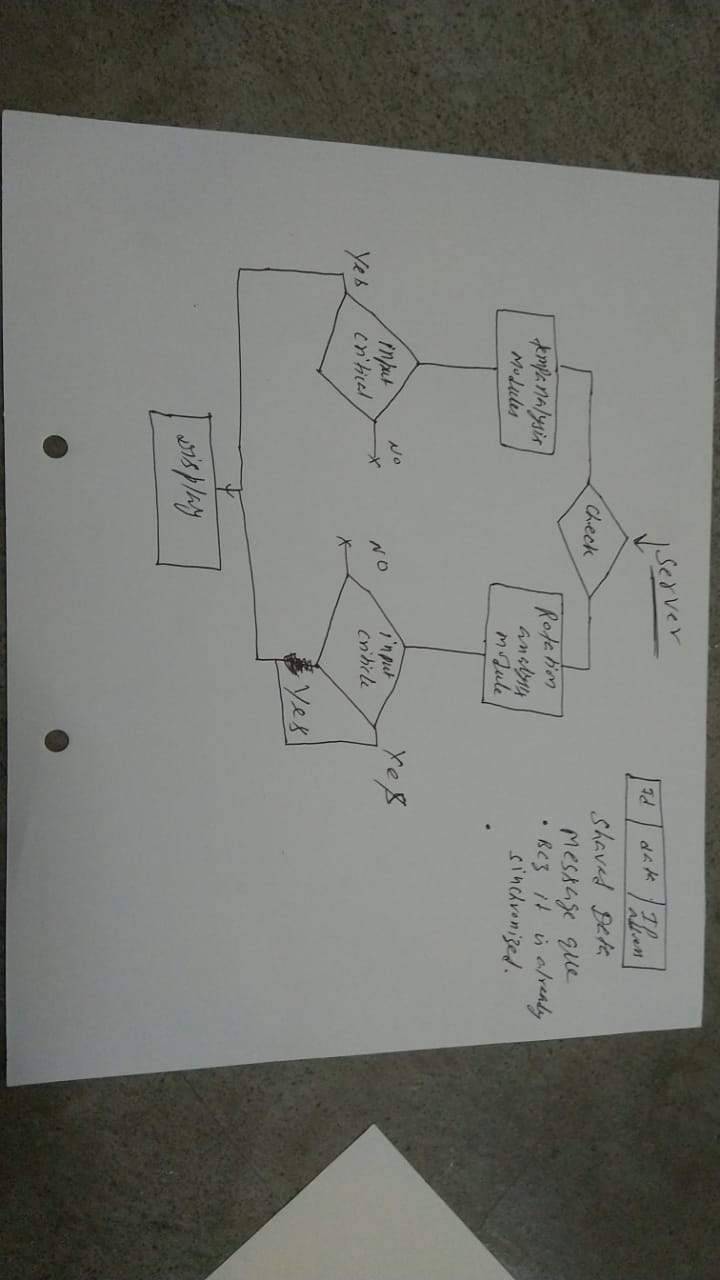 Server
Check
tempanalysis
Modules
Rotation
analysis
module
input
critical
Yes
NO
X
input
criticle
NO
X
Yes
Yes
Display
Id | data | IP
Shared Data
Message que
• BCZ it is already
sinchronized.
•